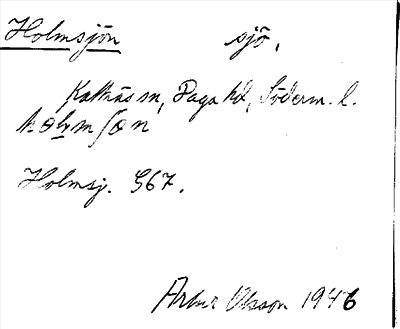 Holmsjön sjö,
Kattnäs sn, Daga hd, Söderm. l.
hɷlmʃɷn
Holmsj. G67.
Artur Olsson 1946